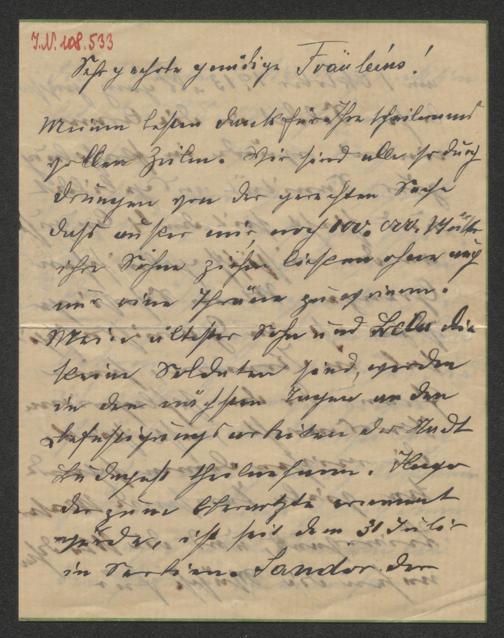 I.N. 108.533
Sehr geehrte gnädige Fräuleins!
Meinen besten Dank für Ihre theilnahms
vollen Zeilen. Wir sind alle so durch
drungen von der gerechten Sache
dass ausser mir noch Mütter
ihre Söhne ziehen liessen ohne auch
nur eine Thräne zu weinen.
Mein ältester Sohn und Bela die
keine Soldaten sind, werden
in den nächsten Tagen an den
Befestigungsarbeiten der Stadt
Budapest theilnehmen. Hugo
der zum Oberarzte ernannt
wurde, ist seit dem 31 Juli
in Serbien. Sandor der